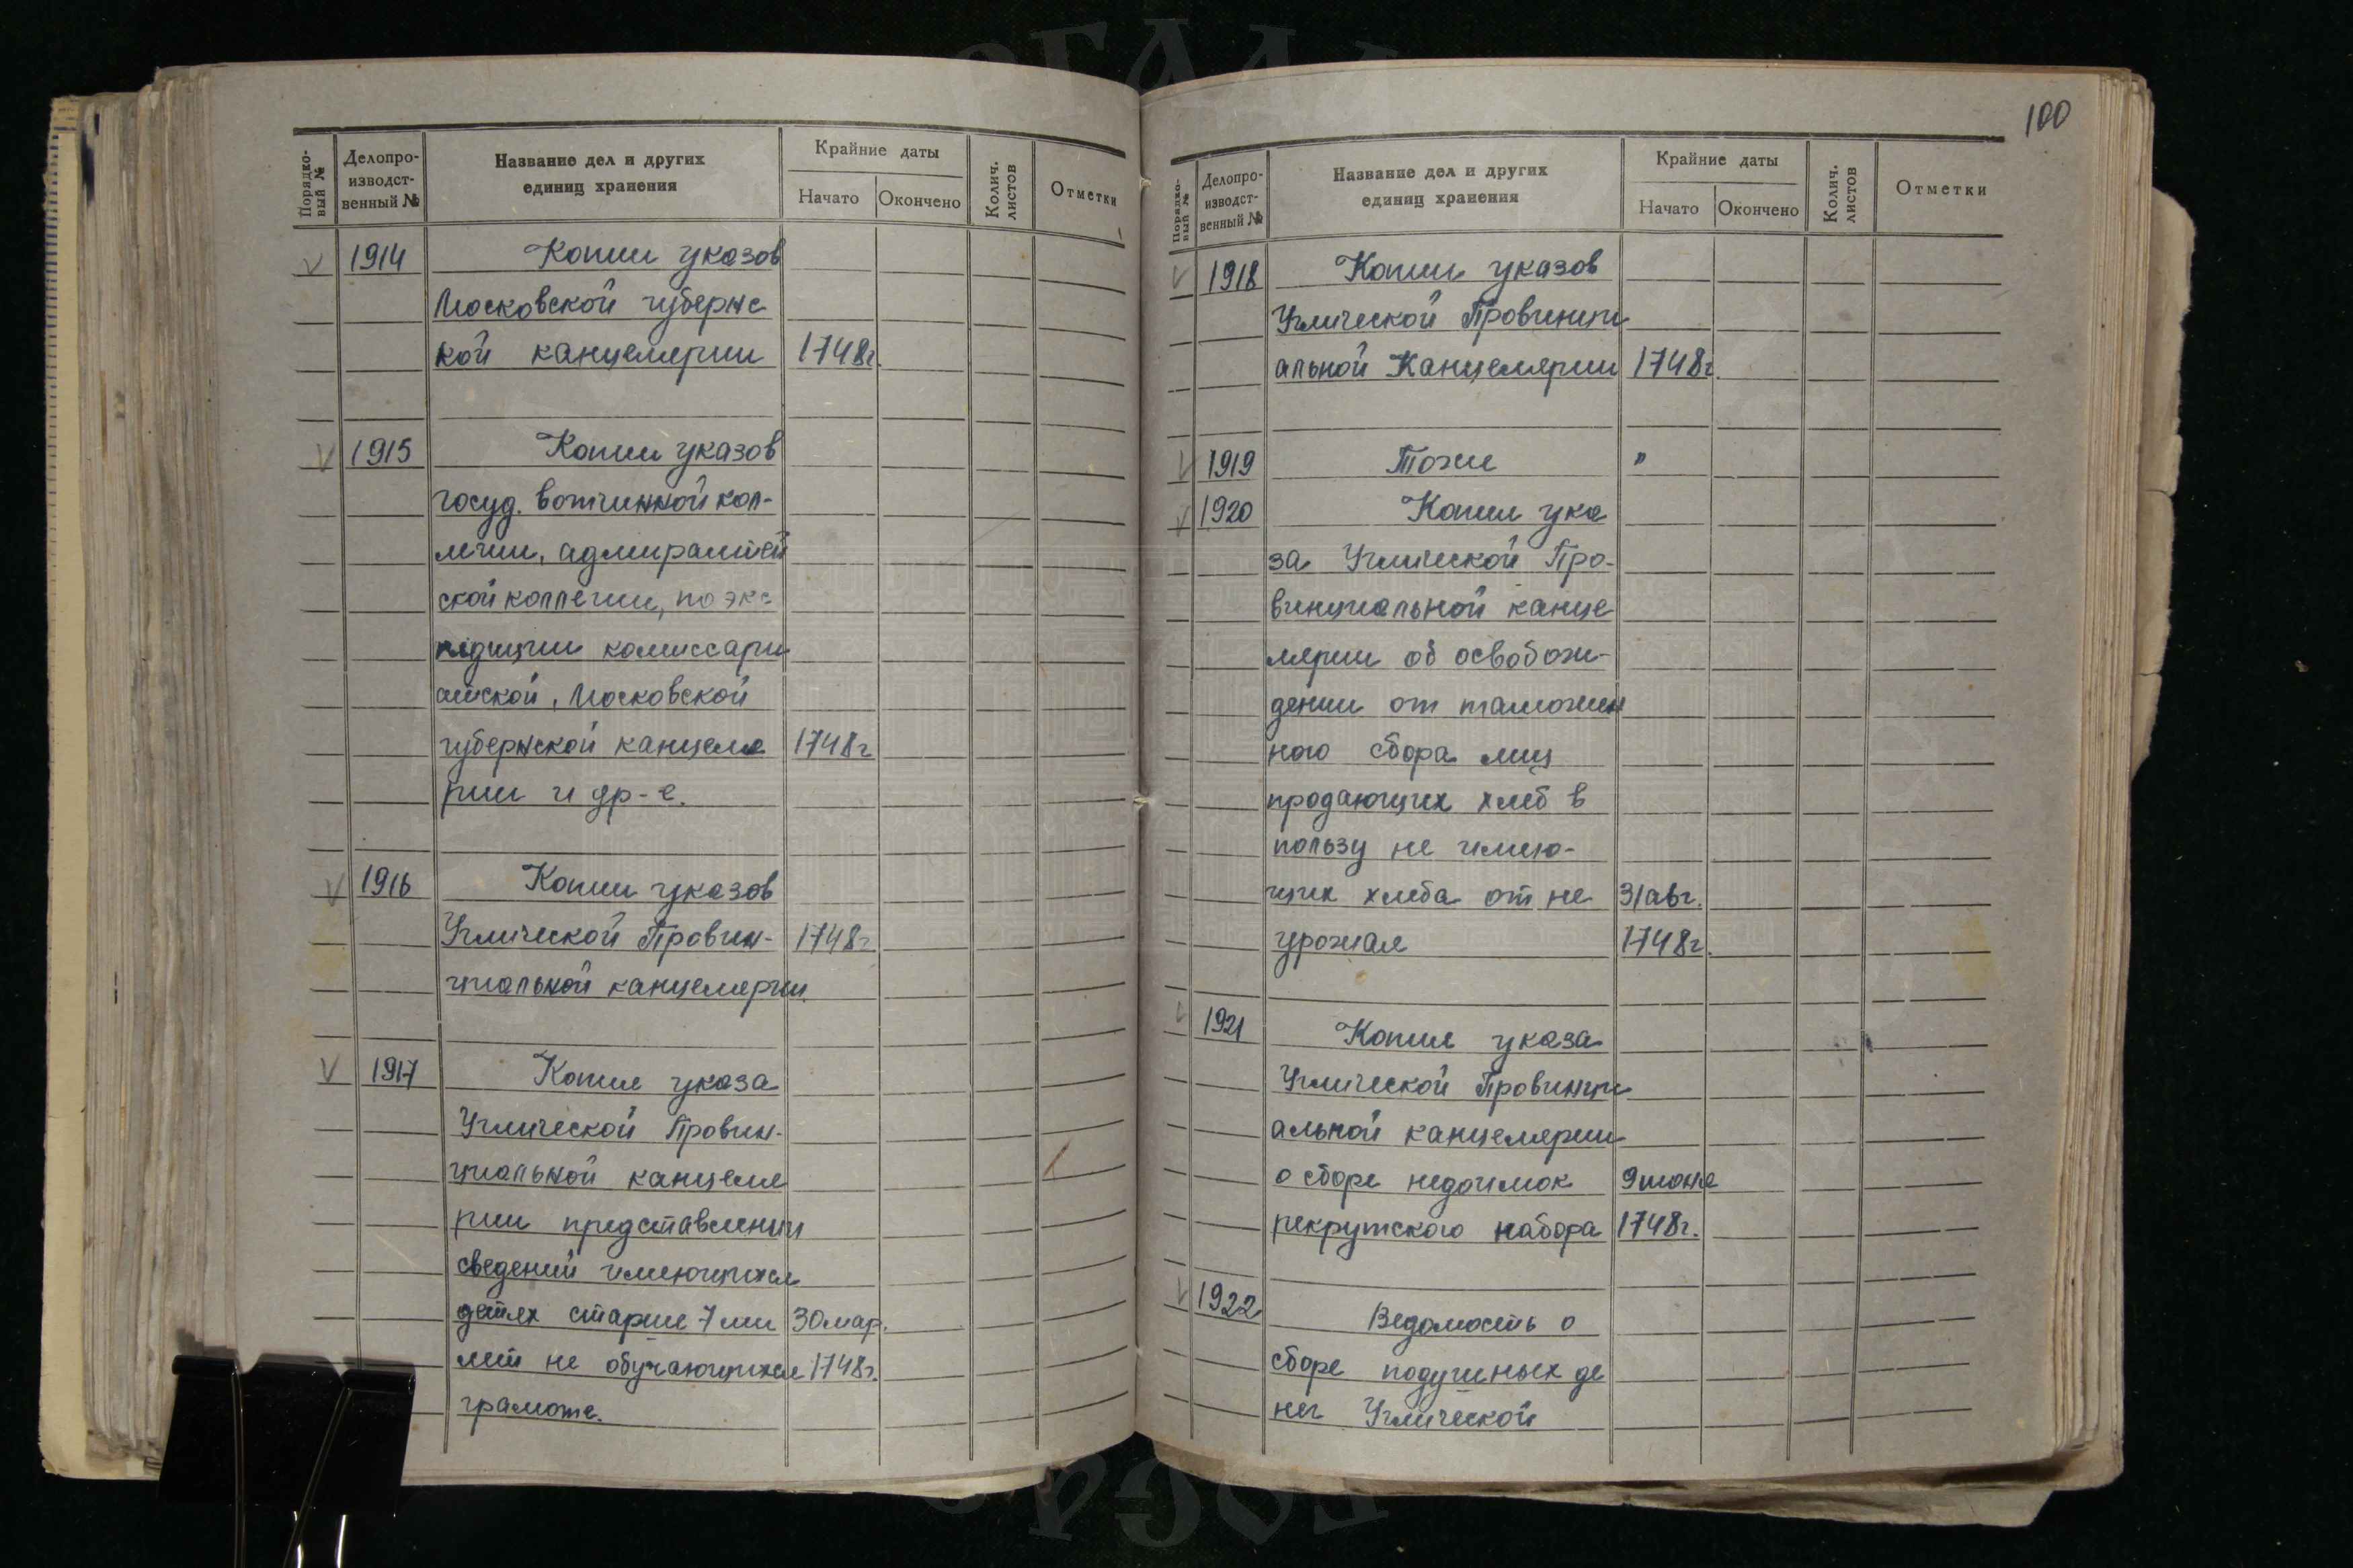 Порядко-
вый №
Делопро-
изводст-
венный №
Название дел и других
единиц хранения
Крайние даты
Начато
Окончено
Колич.
листов
Отметки
√ 1914 Копии указов
Московской губернс
кой канцелярии 1748г.
√ 1915 Копии указов
госуд. вотчинной кол-
легии, адмиралтей
ской коллегии, по экс-
педиции комиссари
атской, Московской
губернской канцеля 1748г
рии и др-е.
√ 1916 Копии указов
Углической Провин- 1748г.
циальной канцелярии.
√ 1917 Копия указа
Углической Провин-
циальной канцеля
рии представлении
сведений имеющихся
детях старше 7 ми 30 мар.
лет не обучающихся 1748г.
грамоте.
100
Порядко-
вый №
Делопро-
изводст-
венный №
Название дел и других
единиц хранения
Крайние даты
Начато
Окончено
Колич.
листов
Отметки
√ 1918 Копии указов
Углической Провинци
альной Канцелярии 1748г.
√ 1919 Тоже "
√ 1920 Копия ука
за Углической Про-
винциальной канце
лярии об освобож-
дении от таможен
ного сбора лиц
продающих хлеб в
пользу не имею-
щих хлеба от не 31 авг.
урожая 1748г.
√ 1921 Копия указа
Углической Провинци
альной канцелярии
о сборе недоимок 9 июня
рекрутского набора 1748г.
√ 1922 Ведомость о
сборе подушных де
нег Углической